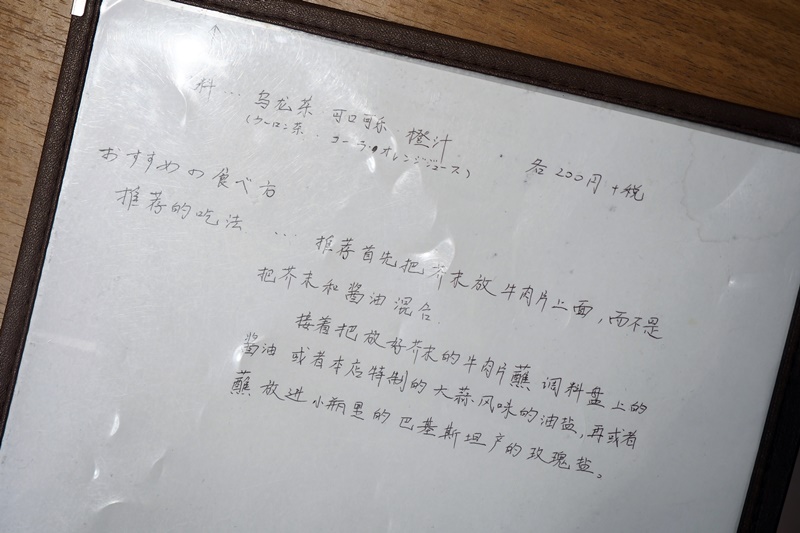 料 … 乌龙茶 可口可乐 橙汁 各200円+税
(ウーロン茶・コーラ・オレンジジュース)
おすすめの食べ方
推荐的吃法 … 推荐首先把芥末放牛肉片上面,而不是
把芥末和酱油混合.
接着把放好芥末的牛肉片蘸调料盘上的
酱油 或者本店特制的大蒜风味的油盐,再或者
蘸放进小瓶里的巴基斯坦产的玫瑰盐。